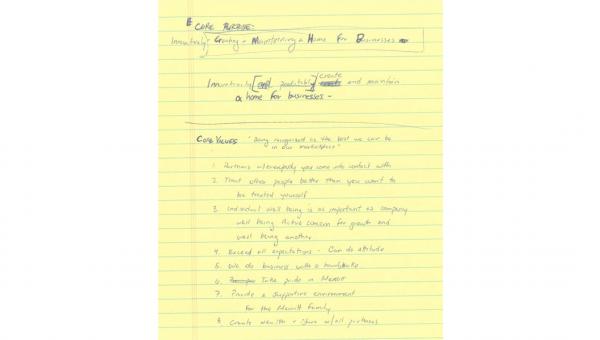 CORE PURPOSE:
Innovatively Creating + Maintaining a Home For Businesses
Innovatively [and profitably] create and maintain
a home for businesses -
CORE VALUES "Being recognized as the best we can be
in our marketplace"
1. Partners w/ everybody you come into contact with
2. Treat other people better than you want to
be treated yourself
3. Individual well being is as important as company
well being Active concern for growth and
well being another
4. Exceed all expectations - Can do attitude
5. We do business with a handshake
6. Take pride in Merritt
7. Provide a Supportive environment
For the Merritt Family
8. Create wealth + share w/all partners